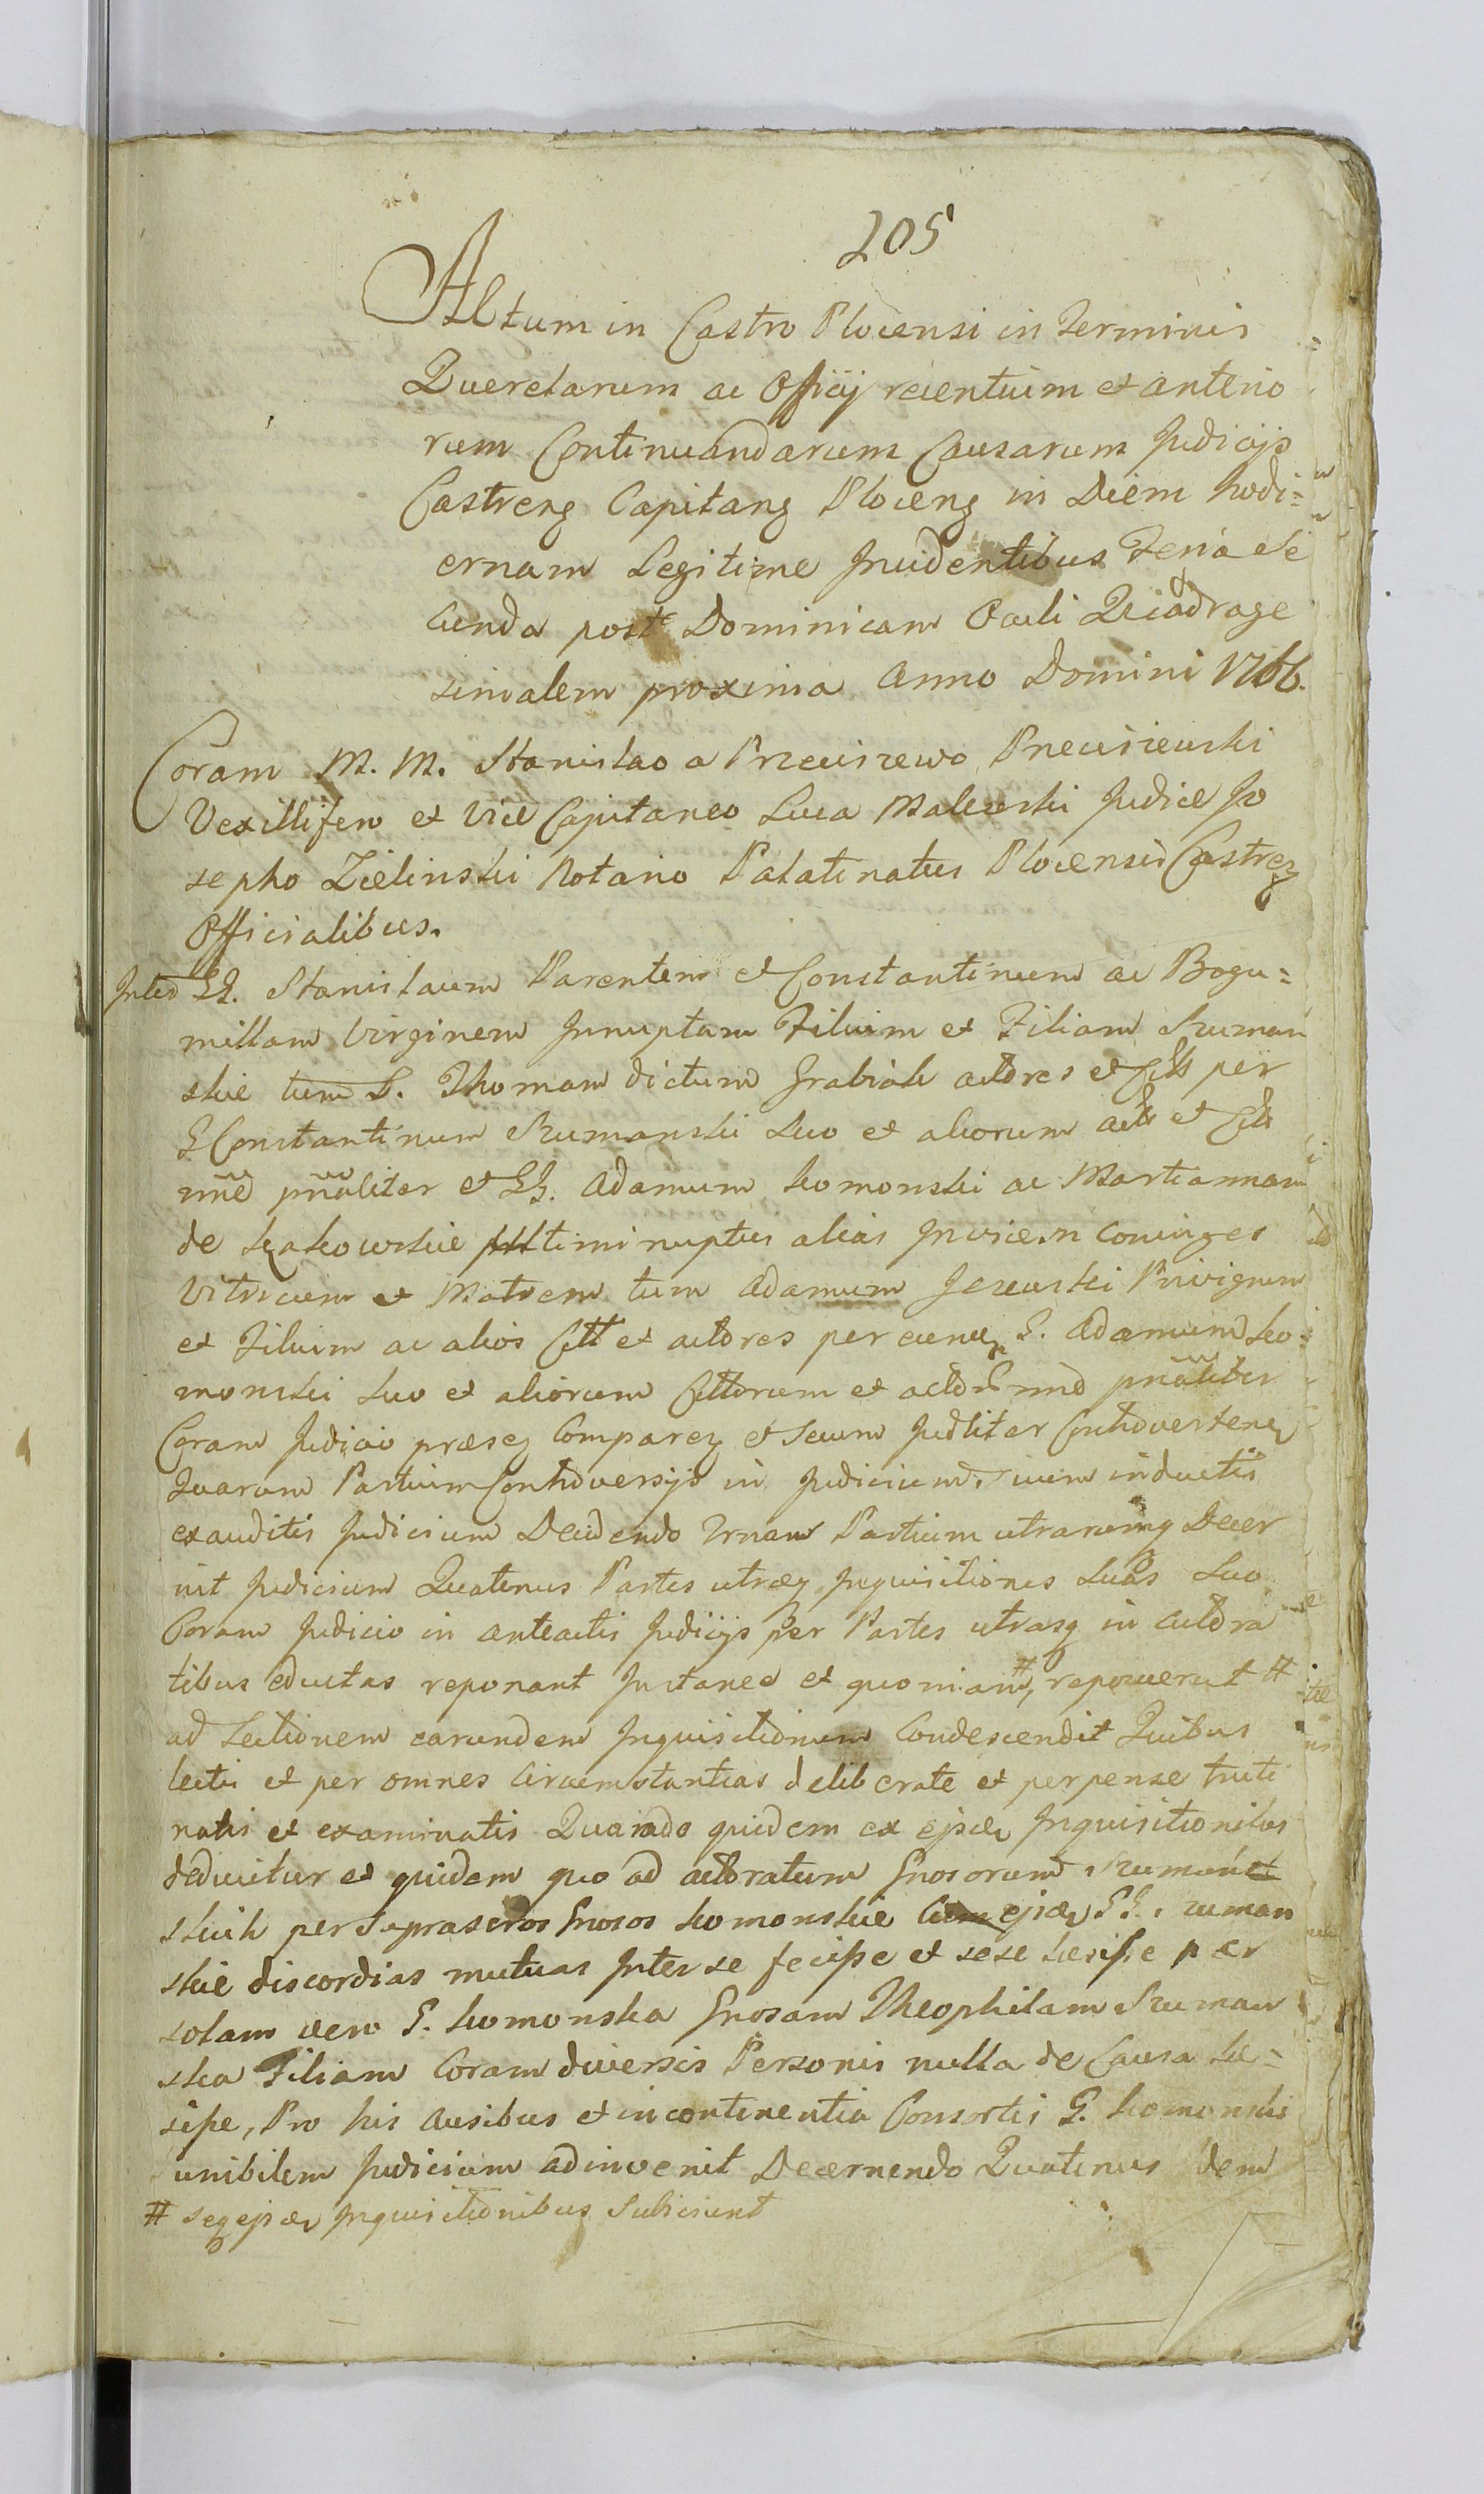 205
Actum in Castro Plocensi in Terminis
Querelarum ac Officij recentium et anterio
rum Continuandarum Causarum Judicijs
Castreng Capitang Ploceng in Diem hodi=
ernam Legitime Incidentibus Feria Se
cunda post Dominicam Oculi Quadrage
simalem proxima Anno Domini 1766.
Coram M. M. Stanislao a Przeciszewo Przeciszewski
Vexillifero et Vice Capitaneo Luca Malewski Judice Jo
sepho Zielinski Notario Palatinatus Plocensis Castreng
Officialibus.
Inter GG. Stanislaum Parentem et Constantinum ac Bogu=
millam Virginem Innuptam Filium et Filiam Szuman
skie tum L. Thomam dictum Grabiak actores et Citts per
G Constantinum Szumanski suo et aliorum acts et Citt
nne pnaliter et GG. Adamum Komonski ac Martiannam
de secundi nuptus alias Invicem coniuges
Vitricum et Matrem tum Adamum Jezewski Privignum
et Filium ac alios Citt et actores per eund G. Adamum Ko=
monski suo et aliorum Cittorum et actor nne pnaliter
Coram Judicio præsg Comparg et secum Judliter Controverteng
Quarum Partium Controversijs in Judicium suum inductis
exauditis Judicium Decidendo Trnam Partium utrarumq Decer
nit Judicium Quatenus Partes utræq Inquisitiones suas suo
Coram Judicio in anteactis Judicijs per Partes utrasq in actora
tibus eductas reponant Instanee et quoniam # reposuerunt #
ad Lectionem earundem Inquisitionum Condescendit Quibus
lectis et per omnes Circumstantias deliberate et perpense truti
natis et examinatis Quando quidem ex ejsdem Inquisitionibus
deducitur et quidem quo ad actoratum Gnosorum Szuman
skich per Suprascros Gnosos Komonskie Cum ejsdem GG. Szuman
skie discordias mutuas Inter se fecisse et sese læsisse per
solam vero G. Komonska Gnosam Theophilam Szuman
ska Filiam Coram diversis Personis nulla de Causa læ=
sisse, Pro his ausibus et incontinentia Consortis G. Komonski
punibilem Judicium adinvenit Decernendo Quatenus idem
# seq ejsdem Inquisitionibus Subiciunt